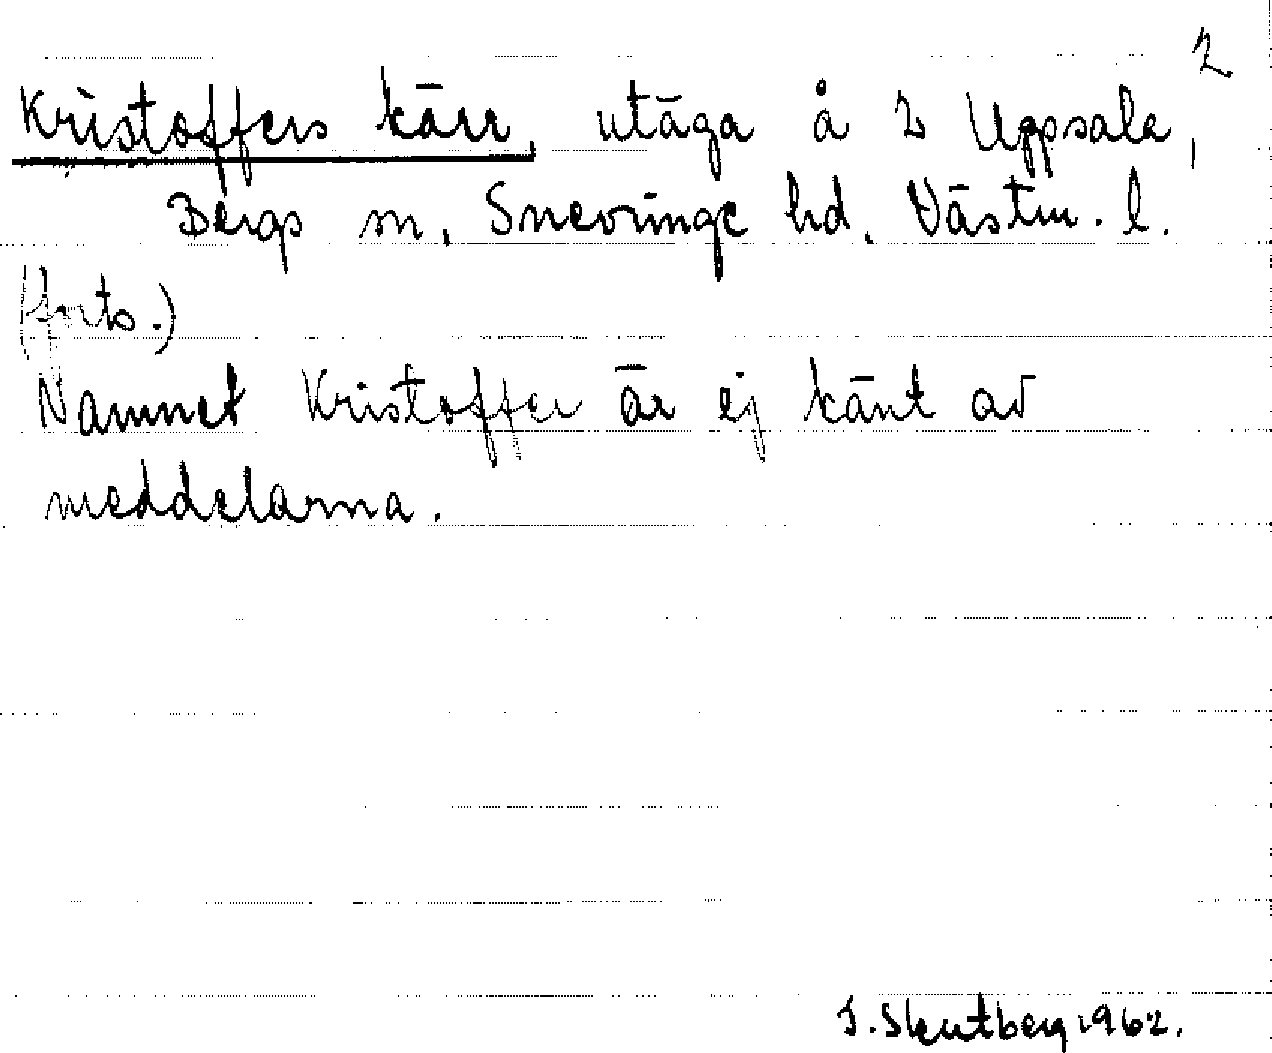 2
Kristoffers kärr, utäga å 2 Uppsala,
Bergs sn, Snevringe hd, Västm. l.
(forts.)
Namnet Kristoffer är ej känt av
meddelarna.
I. Skutberg 1962.